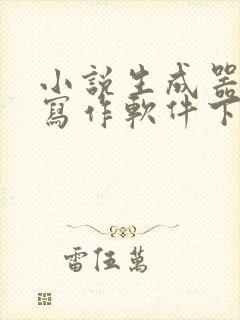 小說生成器
寫作軟件下
雷伍萬